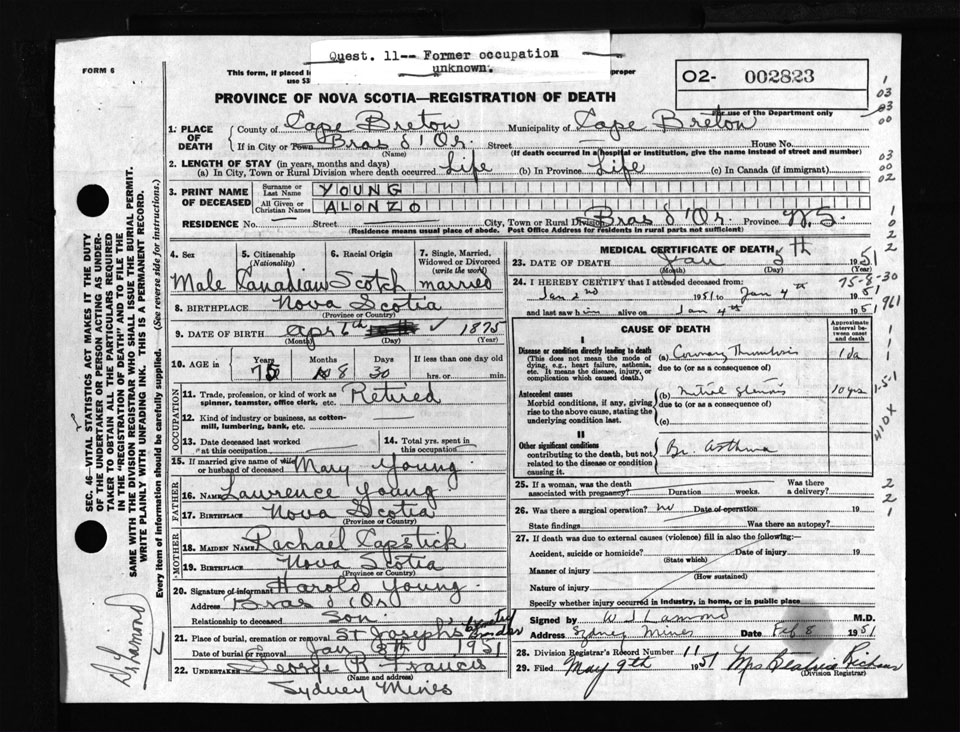 Quest. 11-- Former occupation
unknown.
FORM 6
This form, if placed in
use $3
proper
02- 002823
for use of the Department only
PROVINCE OF NOVA SCOTIA—REGISTRATION OF DEATH
1. PLACE OF DEATH
County of Cape Breton Municipality of Cape Breton
If in City or Town Bras d'Or Street — House No.
(Name) (If death occurred in a hospital or institution, give the name instead of street and number)
2. LENGTH OF STAY (in years, months and days)
(a) In City, Town or Rural Division where death occurred Life (b) In Province Life (c) In Canada (if immigrant)
3. PRINT NAME OF DECEASED
Surname or Last Name YOUNG
All Given or Christian Names ALONZO
RESIDENCE No. — Street — City, Town or Rural Division Bras d'Or Province N.S.
(Residence means usual place of abode. Post Office Address for residents in rural parts not sufficient)
4. Sex 5. Citizenship (Nationality) 6. Racial Origin 7. Single, Married, Widowed or Divorced (write the word)
Male Canadian Scotch married
8. BIRTHPLACE Nova Scotia
(Province or Country)
9. DATE OF BIRTH Apr 6th 1875
(Month) (Day) (Year)
10. AGE in Years Months Days If less than one day old
75 8 30 hrs. or min.
OCCUPATION
11. Trade, profession, or kind of work as spinner, teamster, office clerk, etc. Retired
12. Kind of industry or business, as cotton-mill, lumbering, bank, etc.
13. Date deceased last worked at this occupation
14. Total yrs. spent in this occupation
15. If married give name of wife or husband of deceased Mary Young
FATHER
16. NAME Lawrence Young
17. BIRTHPLACE Nova Scotia
(Province or Country)
MOTHER
18. MAIDEN NAME Rachael Capstick
19. BIRTHPLACE Nova Scotia
(Province or Country)
20. Signature of informant Harold Young
Address Bras d'Or
Relationship to deceased Son
21. Place of burial, cremation or removal St Joseph's
Date of burial or removal Jan 1951
22. UNDERTAKER George R Francis
(Name and address)
Sydney Mines
MEDICAL CERTIFICATE OF DEATH
23. DATE OF DEATH Jan 5th 1951
(Month) (Day) (Year)
24. I HEREBY CERTIFY that I attended deceased from:
Jan 2nd 1951 to Jan 4th 1951
and last saw him alive on Jan 4th 1951
75-8-30
CAUSE OF DEATH
Approximate interval between onset and death
I
Disease or condition directly leading to death
(This does not mean the mode of dying, e.g., heart failure, asthenia, etc. It means the disease, injury, or complication which caused death.)
(a) Coronary Thrombosis 1 da
due to (or as a consequence of)
Antecedent causes
Morbid conditions, if any, giving rise to the above cause, stating the underlying condition last.
(b) Mitral Stenosis 10 yrs
due to (or as a consequence of)
(c)
II
Other significant conditions
contributing to the death, but not related to the disease or condition causing it.
Br. Asthma
25. If a woman, was the death associated with pregnancy? Duration weeks. Was there a delivery?
26. Was there a surgical operation? no Date of operation 19
State findings Was there an autopsy?
27. If death was due to external causes (violence) fill in also the following:—
Accident, suicide or homicide? Date of injury 19
(State which)
Manner of injury
(How sustained)
Nature of injury
Specify whether injury occurred in industry, in home, or in public place
Signed by W J Lamond M.D.
Address Sydney Mines Date Feb 8 1951
28. Division Registrar's Record Number 11
29. Filed May 9th 1951 Mrs Beatrice
(Division Registrar)
SEC. 46—VITAL STATISTICS ACT MAKES IT THE DUTY
OF THE UNDERTAKER OR PERSON ACTING AS UNDER-
TAKER TO OBTAIN ALL THE PARTICULARS REQUIRED
IN THE "REGISTRATION OF DEATH" AND TO FILE THE
SAME WITH THE DIVISION REGISTRAR WHO SHALL ISSUE THE BURIAL PERMIT.
WRITE PLAINLY WITH UNFADING INK. THIS IS A PERMANENT RECORD.
Every item of information should be carefully supplied. (See reverse side for instructions.)
Dr Lamond
1
03
03
00
03
00
02
1
0
2
2
1961
1
1
1
1-5-1
410X
2
2
1